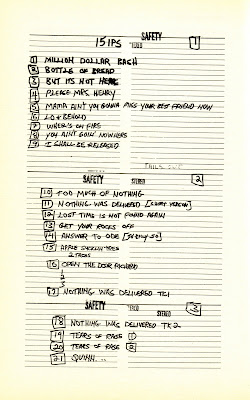 SAFETY
15 IPS
1
1 MILLION DOLLAR BASH
2 BOTTLE OF BREAD
3 BUT ITS NOT HERE
4 PLEASE MRS. HENRY
5 MAMA AIN'T YOU GONNA MISS YOUR BEST FRIEND NOW
6 LO & BEHOLD
7 WHEEL'S ON FIRE
8 YOU AIN'T GOIN' NOWHERE
9 I SHALL BE RELEASED
TAILS OUT
SAFETY
STEREO
2
10 TOO MUCH OF NOTHING
11 NOTHING WAS DELIVERED [SHORT VERSION]
12 LOST TIME IS NOT FOUND AGAIN
13 GET YOUR ROCKS OFF
14 ANSWER TO ODE
15 APPLE SUCKLIN TREE
2 TAKES
16 OPEN THE DOOR RICHARD
1
2
3
17 NOTHING WAS DELIVERED TK1
SAFETY
STEREO
3
18 NOTHING WAS DELIVERED TK2
19 TEARS OF RAGE 1
20 TEARS OF RAGE 2
21 QUINN...